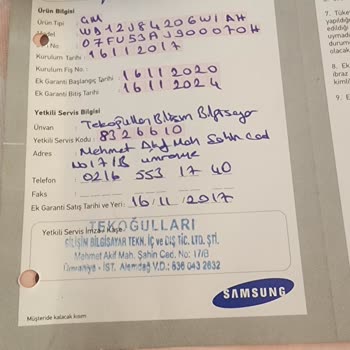 Ürün Bilgisi
Ürün Tipi GM
Model WD12J8420GW1AH
Seri No. 07FU53AJ900070H
Kurulum Tarihi 16 11 2017
Kurulum Fiş No.:
Ek Garanti Başlangıç Tarihi 16 11 2020
Ek Garanti Bitiş Tarihi 16 11 2024
Yetkili Servis Bilgisi
Ünvan : Tekoğulları Bilişim Bilgisayar
Yetkili Servis Kodu : 8326610
Adres : Mehmet Akif Mah Şahin Cad
No 17/B ümraniye
Telefon : 0216 553 17 40
Faks :
Ek Garanti Satış Tarihi ve Yeri: 16/11/2017
Yetkili Servis İmza / Kaşe
TEKOĞULLARI
BİLİŞİM BİLGİSAYAR TEKN. İÇ ve DIŞ TİC. LTD. ŞTİ.
Mahmet Akif Mah. Şahin Cad. No: 17/B
Ümraniye - İST. Alemdağ V.D.: 836 043 2632
SAMSUNG
Müşteride kalacak kısım
7. Tüke
yapıldığı
edildiği
uymadı
durum
olacak
8. Ek
ibraz
kimli
9. E